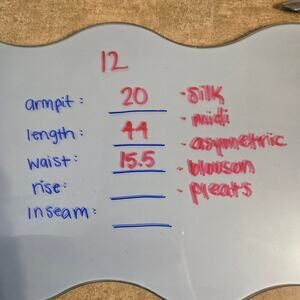 12
armpit: 20
length: 44
waist: 15.5
rise:
inseam:
- silk
- midi
- asymmetric
- blouson
- pleats